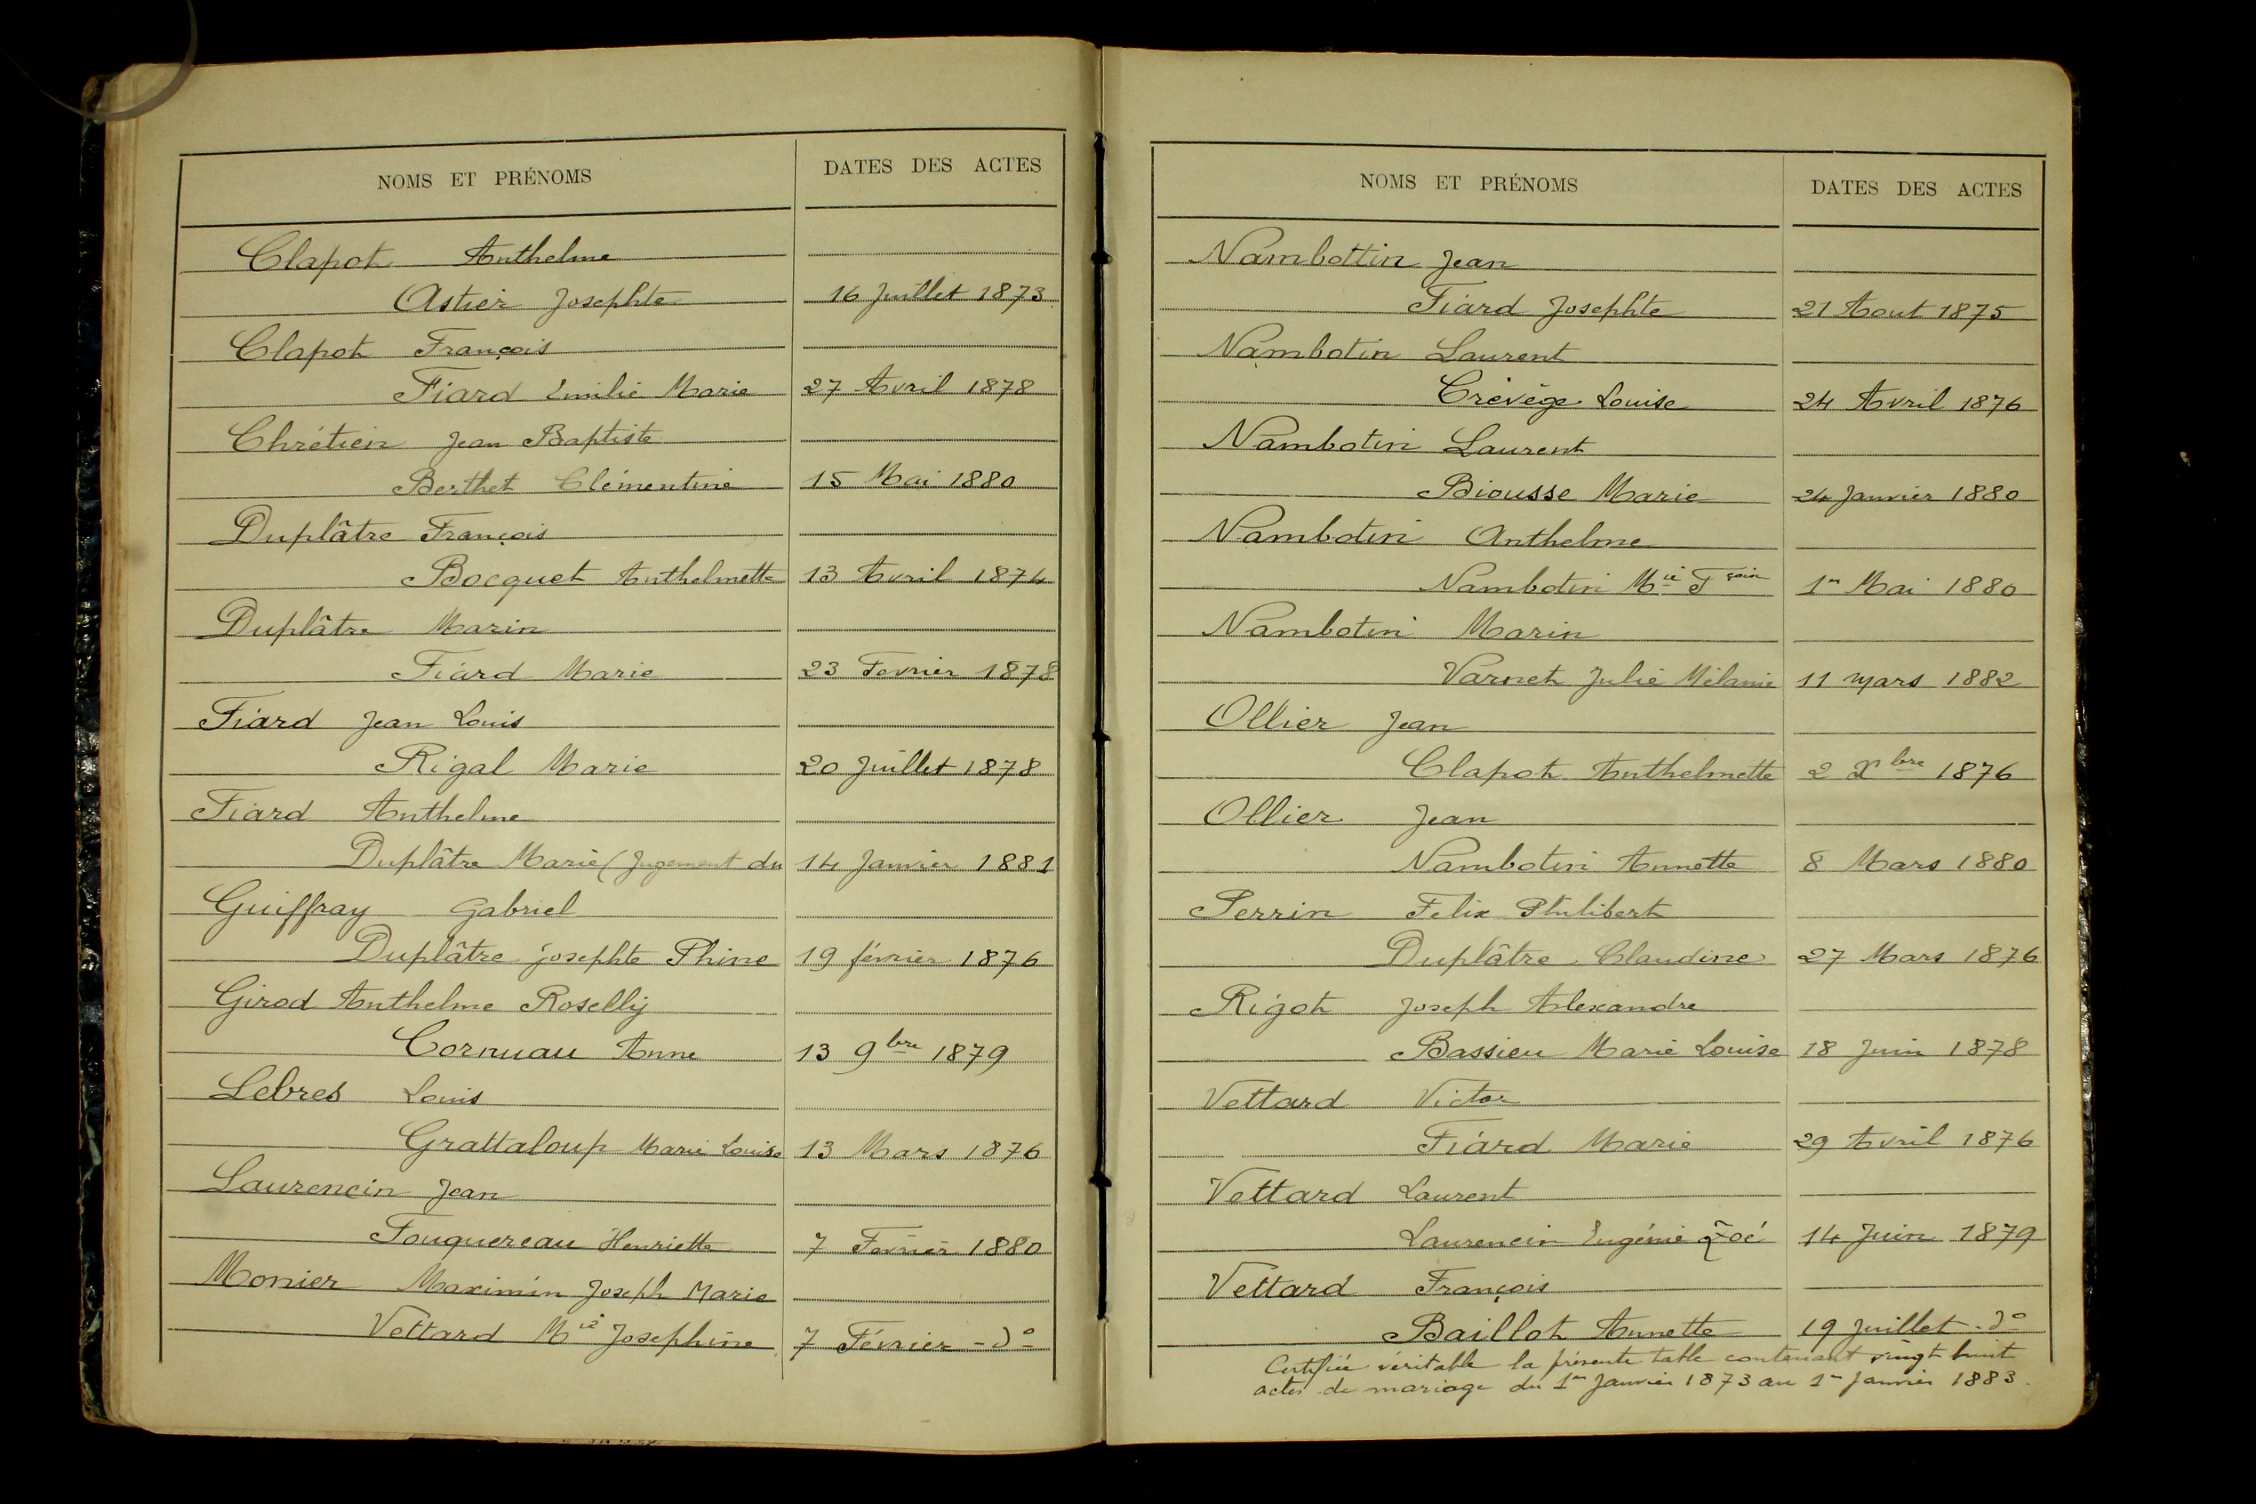 NOMS ET PRÉNOMS DATES DES ACTES
Clapot Anthelme
Astier Josephte 16 Juillet 1873
Clapot François
Fiard Emilie Marie 27 Avril 1878
Chrétien Jean Baptiste
Berthet Clémentine 15 Mai 1880
Duplâtre François
Bocquet Anthelmette 13 Avril 1874
Duplâtre Marin
Fiard Marie 23 Fevrier 1878
Fiard Jean Louis
Rigal Marie 20 Juillet 1878
Fiard Anthelme
Duplâtre Marie (Jugement du 14 Janvier 1881
Guiffray Gabriel
Duplâtre Josephte Phine 19 février 1876
Girod Anthelme Roselly
Cornuau Anne 13 9bre 1879
Lebres Louis
Grattaloup Marie Louise 13 Mars 1876
Laurencin Jean
Fouquereau Henriette 7 Fevrier 1880
Monier Maximin Joseph Marie
Vettard Mie Josephine 7 Février - do
NOMS ET PRÉNOMS DATES DES ACTES
Nambottin Jean
Fiard Josephte 21 Aout 1875
Nambotin Laurent
Crevège Louise 24 Avril 1876
Nambotin Laurent
Biousse Marie 24 Janvier 1880
Nambotin Anthelme
Nambotin Mie Fçoise 1er Mai 1880
Nambotin Marin
Varnet Julie Mélanie 11 mars 1882
Ollier Jean
Clapot Anthelmette 2 Xbre 1876
Ollier Jean
Nambotin Annette 8 Mars 1880
Perrin Felix Philibert
Duplâtre Claudine 27 Mars 1876
Rigot Joseph Alexandre
Bassieu Marie Louise 18 Juin 1878
Vettard Victor
Fiard Marie 29 Avril 1876
Vettard Laurent
Laurencin Eugénie Zoé 14 Juin 1879
Vettard François
Baillot Annette 19 Juillet - do
Certifiée véritable la présente table contenant vingt huit
actes de mariage du 1er Janvier 1873 au 1er Janvier 1883.